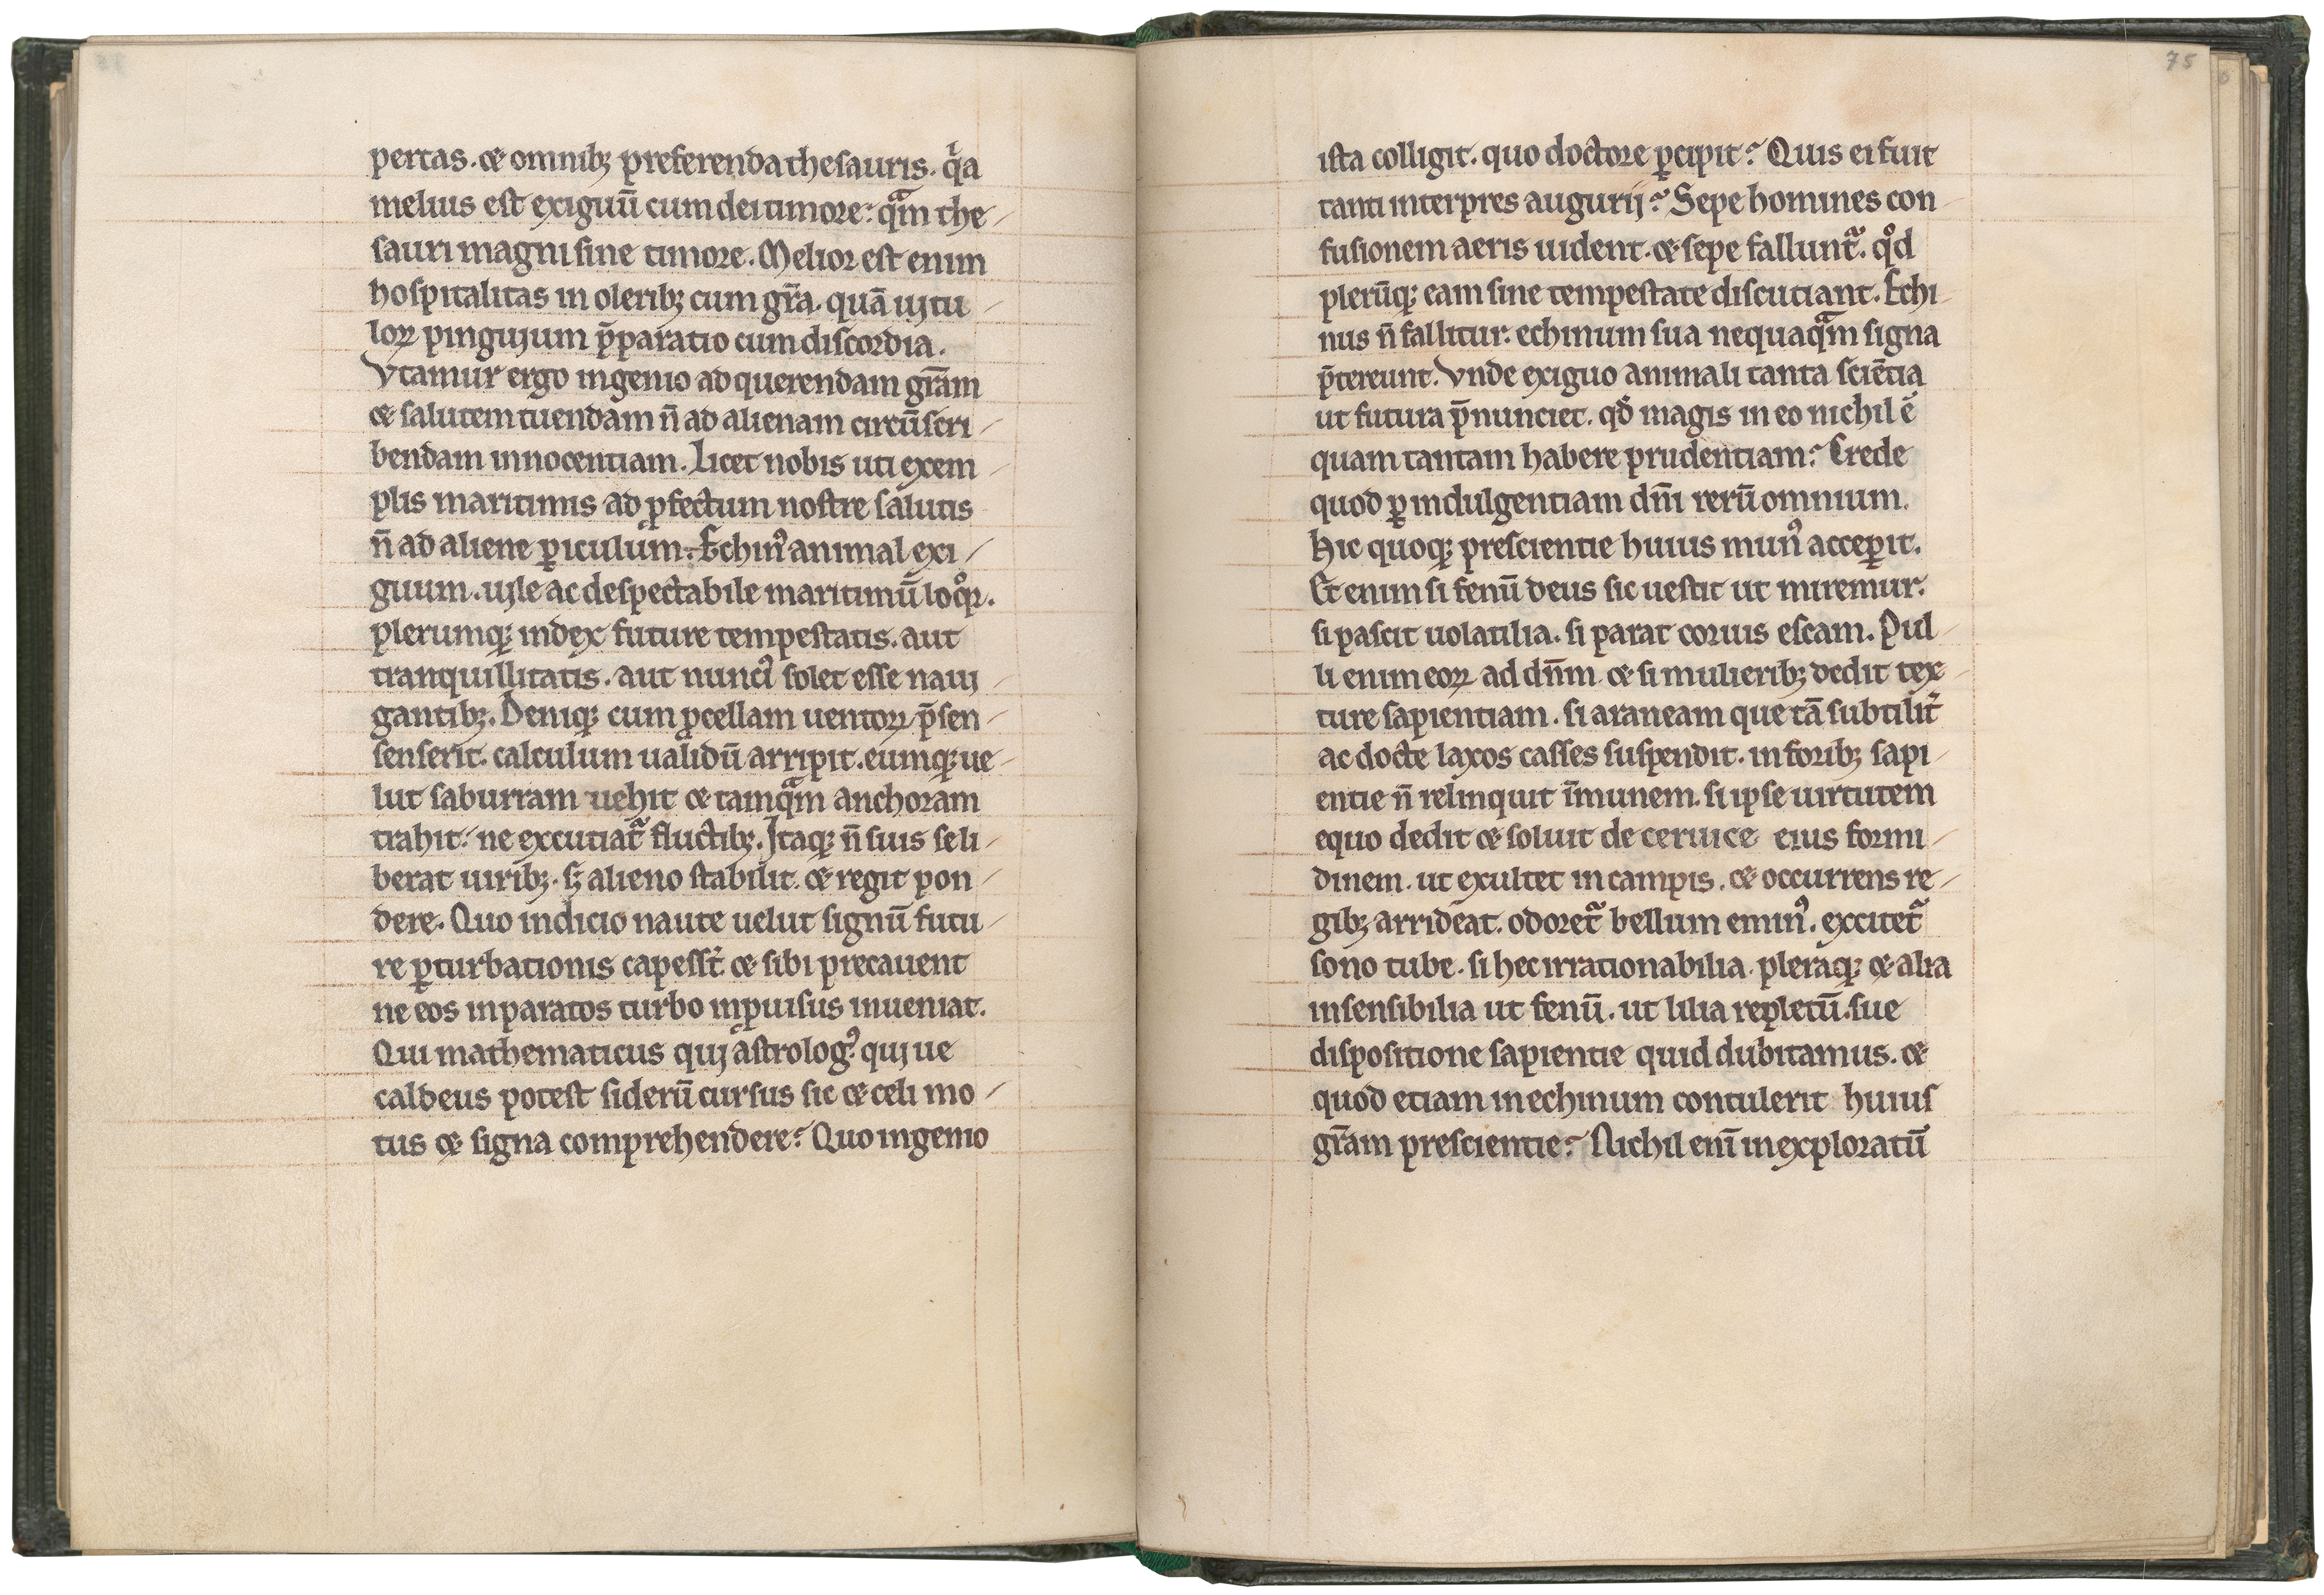 pertas. et omnibꝫ preferenda thesauris. qͥa
melius est exiguū cum dei timore: qᵃ̄m the-
sauri magni sine timore. Melior est enim
hospitalitas in oleribꝫ cum gr̄a. quā uitu-
loꝝ pinguium p̄paratio cum discordia.
Vtamur ergo ingenio ad querendam gr̄am
et salutem tuendam n̄ ad alienam circūscri-
bendam innocentiam. Licet nobis uti exem-
plis maritimis ad ꝓfectum nostre salutis
n̄ ad aliene ꝑiculum. Echinꝰ animal exi-
guum. uile ac despectabile maritimū loqͦꝛ.
plerumqꝫ index future tempestatis. aut
tranquillitatis. aut nunciꝰ solet esse naui-
gantibꝫ. Deniqꝫ cum ꝓcellam uentoꝝ p̄sen-
senserit. calculum ualidū arripit. eumqꝫ ue-
lut saburram uehit et tamqᵃ̄m anchoram
trahit. ne excutiat᷑ fluctibꝫ. Itaqꝫ n̄ suis se li-
berat uiribꝫ. sꝫ alieno stabilit. et regit pon-
dere. Quo indicio naute uelut signū futu-
re ꝑturbationis capess̄t. et sibi precauent
ne eos inparatos turbo inꝓuisus inueniat.
Qui mathematicus qui astrologꝰ. qui ue
caldeus potest siderū cursus sic et celi mo-
tus et signa comprehendere? Quo ingenio
75
ista colligit. quo doctore ꝑcipit? Quis ei fuit
tanti interpres augurij? Sepe homines con-
fusionem aeris uident. et sepe fallunt᷑. qͦd
plerūqꝫ eam sine tempestate discutiant. Echi-
nus n̄ fallitur. echinum sua nequaqᵃ̄m signa
p̄tereunt. Vnde exiguo animali tanta sciētia
ut futura p̄nunciet. qd̄ magis in eo nichil ē
quam tantam habere prudentiam? Crede
quod ꝑ indulgentiam dn̄i rerū omnium.
Hic quoqꝫ prescientie huius munꝰ acceꝑit.
Et enim si fenū deus sic uestit ut miremur.
si pascit uolatilia. si parat coruis escam. Pul-
li enim eoꝝ ad dn̄m et si mulieribꝫ dedit tex-
ture sapientiam. si araneam que tā subtilit᷑
ac docte laxos casses suspendit. in foribꝫ sapi-
entie n̄ relinquit īmunem. si ipse uirtutem
equo dedit et soluit de ceruice eius formi-
dinem. ut exultet in campis. et occurrens re-
gibꝫ arrideat. odoret᷑ bellum eminꝰ. excitet᷑
sono tube. si hec irrationabilia. pleraqꝫ et alia
insensibilia ut fenū. ut lilia repletū. sue
dispositione sapientie quid dubitamus. et
quod etiam in echinum contulerit huius
gr̄am prescientie? Nichil enī inexploratū